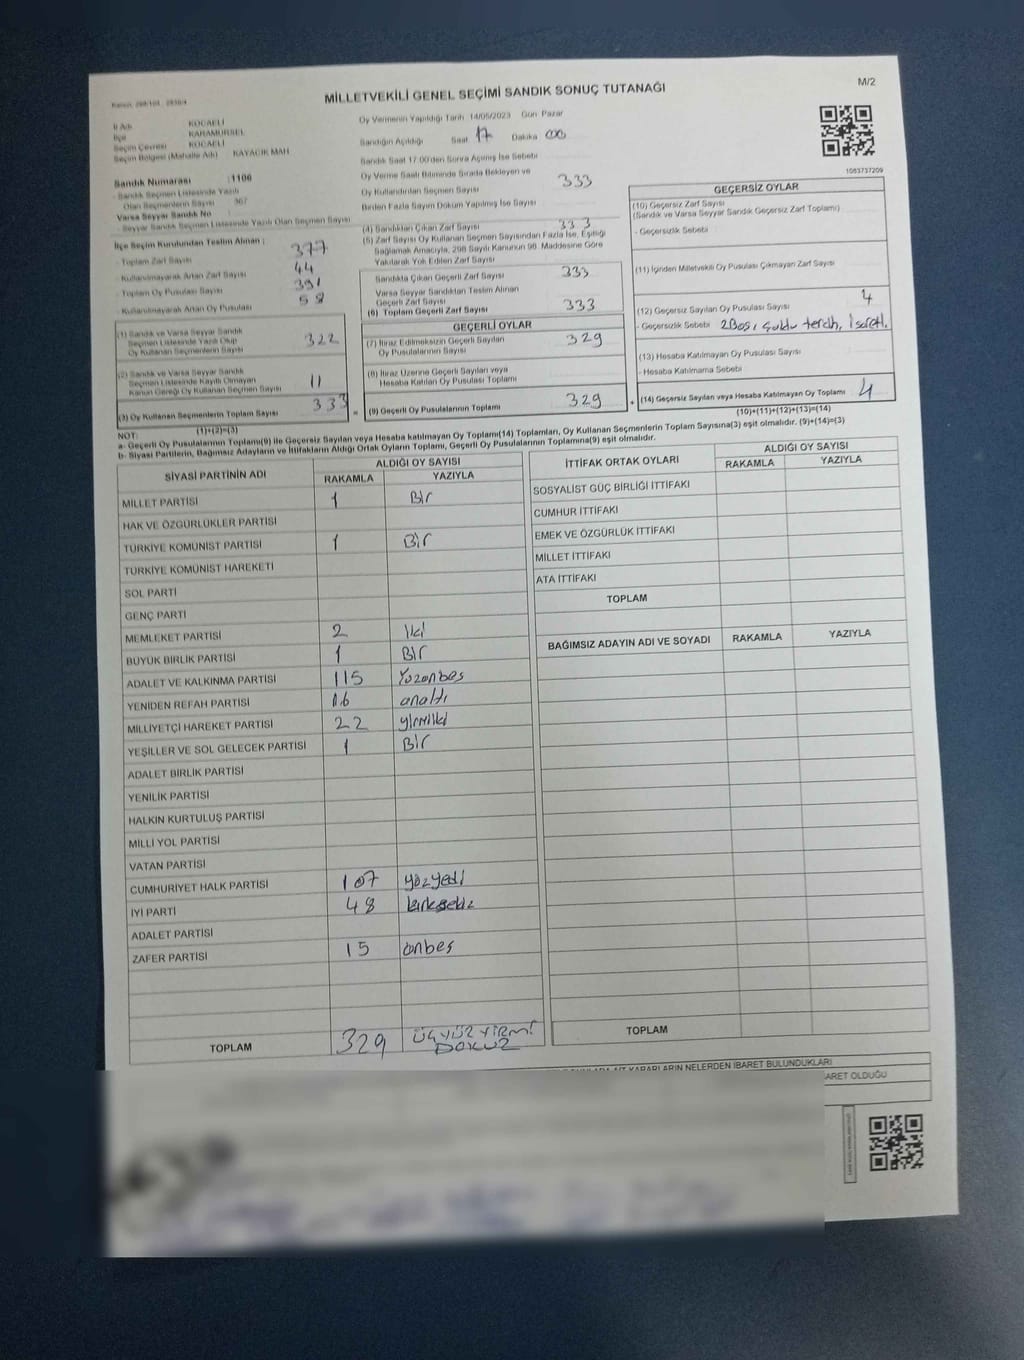 M/2
MİLLETVEKİLİ GENEL SEÇİMİ SANDIK SONUÇ TUTANAĞI
İl Adı KOCAELİ
İlçe KARAMÜRSEL
Seçim Çevresi KOCAELİ
Seçim Bölgesi (Mahalle Adı) KAYACIK MAH
Oy Vermenin Yapıldığı Tarih 14/05/2023 Gün Pazar
Sandığın Açıldığı Saat 17 Dakika 00
Sandık Saat 17:00'den Sonra Açılmış İse Sebebi
Oy Verme Saati Bitiminde Sırada Bekleyen ve
Oy Kullandırılan Seçmen Sayısı 333
Birden Fazla Sayım Döküm Yapılmış İse Sayısı
1083737209
Sandık Numarası :1106
- Sandık Seçmen Listesinde Yazılı
Olan Seçmenlerin Sayısı 367
Varsa Seyyar Sandık No
- Seyyar Sandık Seçmen Listesinde Yazılı Olan Seçmen Sayısı
İlçe Seçim Kurulundan Teslim Alınan :
- Toplam Zarf Sayısı 377
- Kullanılmayarak Artan Zarf Sayısı 44
- Toplam Oy Pusulası Sayısı 391
- Kullanılmayarak Artan Oy Pusulası 58
(1) Sandık ve Varsa Seyyar Sandık
Seçmen Listesinde Yazılı Olup
Oy Kullanan Seçmenlerin Sayısı 322
(2) Sandık ve Varsa Seyyar Sandık
Seçmen Listesinde Kayıtlı Olmayan
Kanun Gereği Oy Kullanan Seçmen Sayısı 11
(3) Oy Kullanan Seçmenlerin Toplam Sayısı 333
(1)+(2)=(3)
(4) Sandıktan Çıkan Zarf Sayısı 333
(5) Zarf Sayısı Oy Kullanan Seçmen Sayısından Fazla İse, Eşitliği
Sağlamak Amacıyla, 298 Sayılı Kanunun 98. Maddesine Göre
Yakılarak Yok Edilen Zarf Sayısı
Sandıkta Çıkan Geçerli Zarf Sayısı 333
Varsa Seyyar Sandıktan Teslim Alınan
Geçerli Zarf Sayısı
(6) Toplam Geçerli Zarf Sayısı 333
GEÇERLİ OYLAR
(7) İtiraz Edilmeksizin Geçerli Sayılan
Oy Pusulalarının Sayısı 329
(8) İtiraz Üzerine Geçerli Sayılan veya
Hesaba Katılan Oy Pusulası Toplamı
= (9) Geçerli Oy Pusulalarının Toplamı 329
GEÇERSİZ OYLAR
(10) Geçersiz Zarf Sayısı
(Sandık ve Varsa Seyyar Sandık Geçersiz Zarf Toplamı)
- Geçersizlik Sebebi
(11) İçinden Milletvekili Oy Pusulası Çıkmayan Zarf Sayısı
(12) Geçersiz Sayılan Oy Pusulası Sayısı 4
- Geçersizlik Sebebi 2Boş,
(13) Hesaba Katılmayan Oy Pusulası Sayısı
- Hesaba Katılmama Sebebi
+ (14) Geçersiz Sayılan veya Hesaba Katılmayan Oy Toplamı 4
(10)+(11)+(12)+(13)=(14)
NOT:
a- Geçerli Oy Pusulalarının Toplamı(9) ile Geçersiz Sayılan veya Hesaba katılmayan Oy Toplamı(14) Toplamları, Oy Kullanan Seçmenlerin Toplam Sayısına(3) eşit olmalıdır. (9)+(14)=(3)
b- Siyasi Partilerin, Bağımsız Adayların ve İttifakların Aldığı Oyların Toplamı, Geçerli Oy Pusulalarının Toplamına(9) eşit olmalıdır.
SİYASİ PARTİNİN ADI ALDIĞI OY SAYISI
RAKAMLA YAZIYLA
MİLLET PARTİSİ 1 Bir
HAK VE ÖZGÜRLÜKLER PARTİSİ
TÜRKİYE KOMÜNİST PARTİSİ 1 Bir
TÜRKİYE KOMÜNİST HAREKETİ
SOL PARTİ
GENÇ PARTİ
MEMLEKET PARTİSİ 2 İki
BÜYÜK BİRLİK PARTİSİ 1 Bir
ADALET VE KALKINMA PARTİSİ 115 Yüzonbeş
YENİDEN REFAH PARTİSİ 16 onaltı
MİLLİYETÇİ HAREKET PARTİSİ 22 yirmiiki
YEŞİLLER VE SOL GELECEK PARTİSİ 1 Bir
ADALET BİRLİK PARTİSİ
YENİLİK PARTİSİ
HALKIN KURTULUŞ PARTİSİ
MİLLİ YOL PARTİSİ
VATAN PARTİSİ
CUMHURİYET HALK PARTİSİ 107 yüzyedi
İYİ PARTİ 48 kırksekiz
ADALET PARTİSİ
ZAFER PARTİSİ 15 onbeş
TOPLAM 329 ÜÇYÜZ YİRMİ
DOKUZ
İTTİFAK ORTAK OYLARI ALDIĞI OY SAYISI
RAKAMLA YAZIYLA
SOSYALİST GÜÇ BİRLİĞİ İTTİFAKI
CUMHUR İTTİFAKI
EMEK VE ÖZGÜRLÜK İTTİFAKI
MİLLET İTTİFAKI
ATA İTTİFAKI
TOPLAM
BAĞIMSIZ ADAYIN ADI VE SOYADI RAKAMLA YAZIYLA
TOPLAM
KARARLARIN NELERDEN İBARET BULUNDUKLARI
ARET OLDUĞU